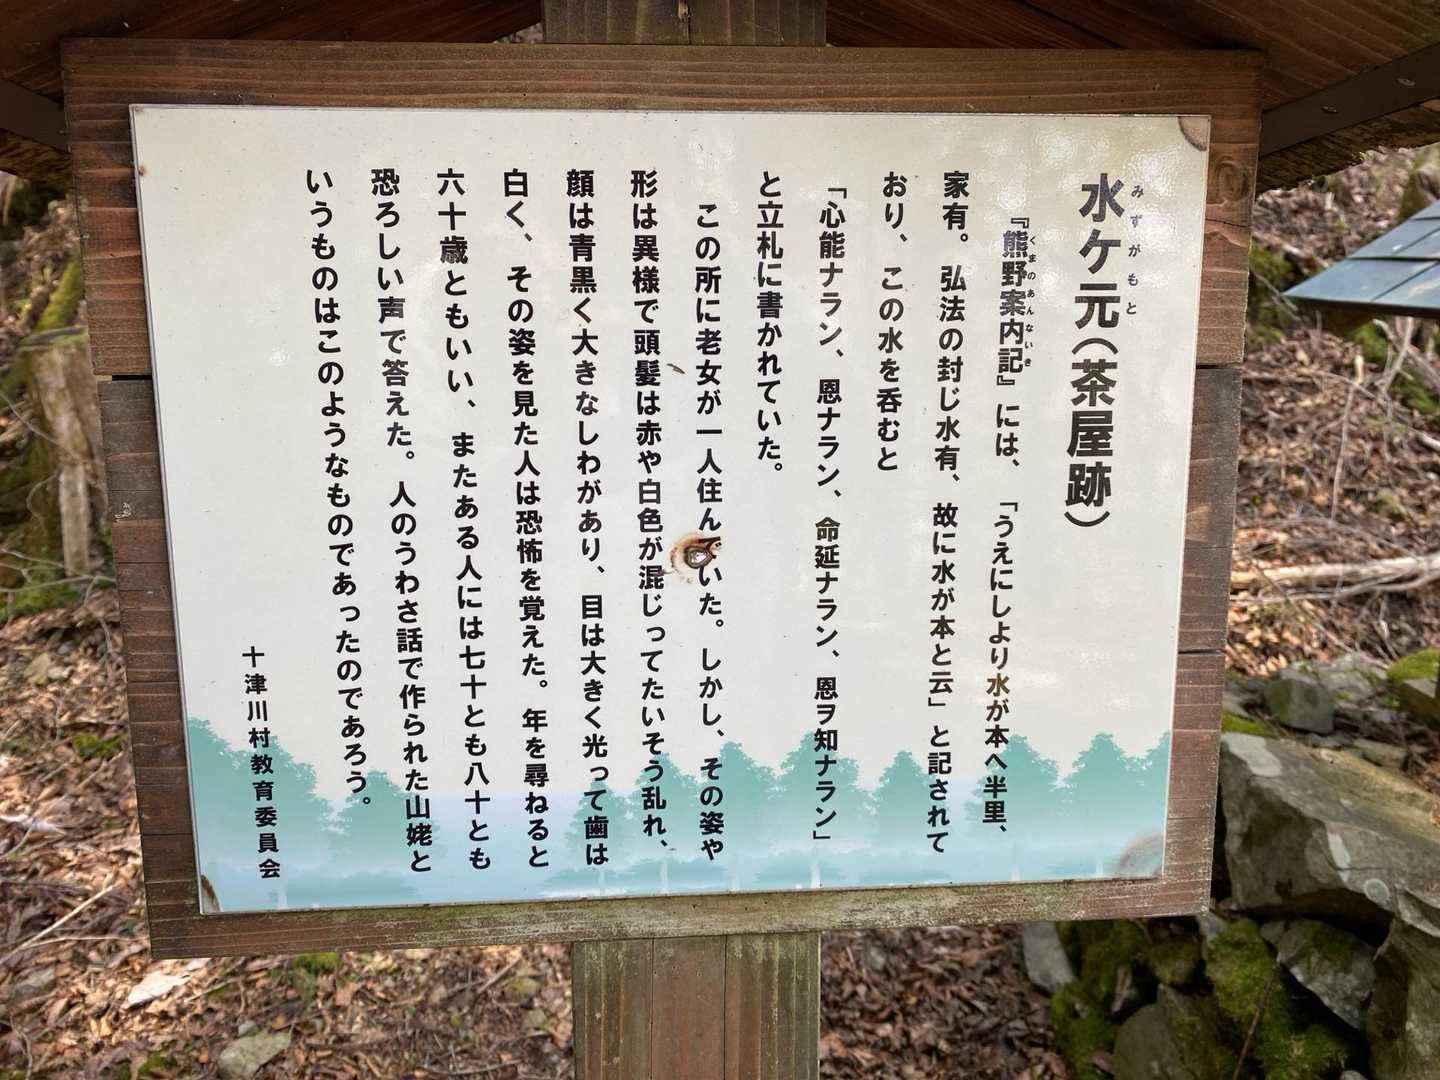 水ケ元(茶屋跡)
みずがもと
『熊野案内記』には、「うえにしより水が本へ半里、
くまのあんないき
家有。弘法の封じ水有、故に水が本と云」と記されて
おり、この水を呑むと
「心能ナラン、恩ナラン、命延ナラン、恩ヲ知ナラン」
と立札に書かれていた。
この所に老女が一人住んでいた。しかし、その姿や
形は異様で頭髪は赤や白色が混じってたいそう乱れ、
顔は青黒く大きなしわがあり、目は大きく光って歯は
白く、その姿を見た人は恐怖を覚えた。年を尋ねると
六十歳ともいい、またある人には七十とも八十とも
恐ろしい声で答えた。人のうわさ話で作られた山姥と
いうものはこのようなものであったのであろう。
十津川村教育委員会